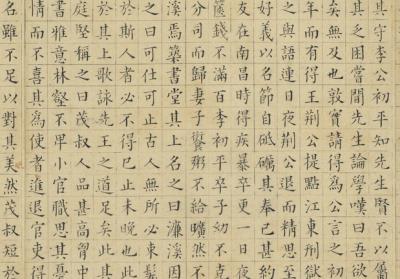 其守李公初平知先生賢不以屬
其之困當間先生論學嘆曰吾欲
矣無及也敦實請得為公言之初
年而有得王荆公提點江東刑獄
之與語連日夜荆公退而精思至
好義以名節自砥礪其奉己甚約
友在南昌時得疾暴卒更一日
篋錢不滿百李初平卒子幼不克
分司而歸妻子饘粥不給曠然不
溪焉築書堂其上名之曰濂溪因
之曰可仕可止古人無所必束髮
於斯人者必不得已止未晚也
於其上歌詠先王之道足矣此其
庭堅稱之曰茂叔人品甚高胷
書雅意林壑不卑小官職思其憂
情而不喜其為使者進退官吏得
名雖不足以對其美然茂叔短於